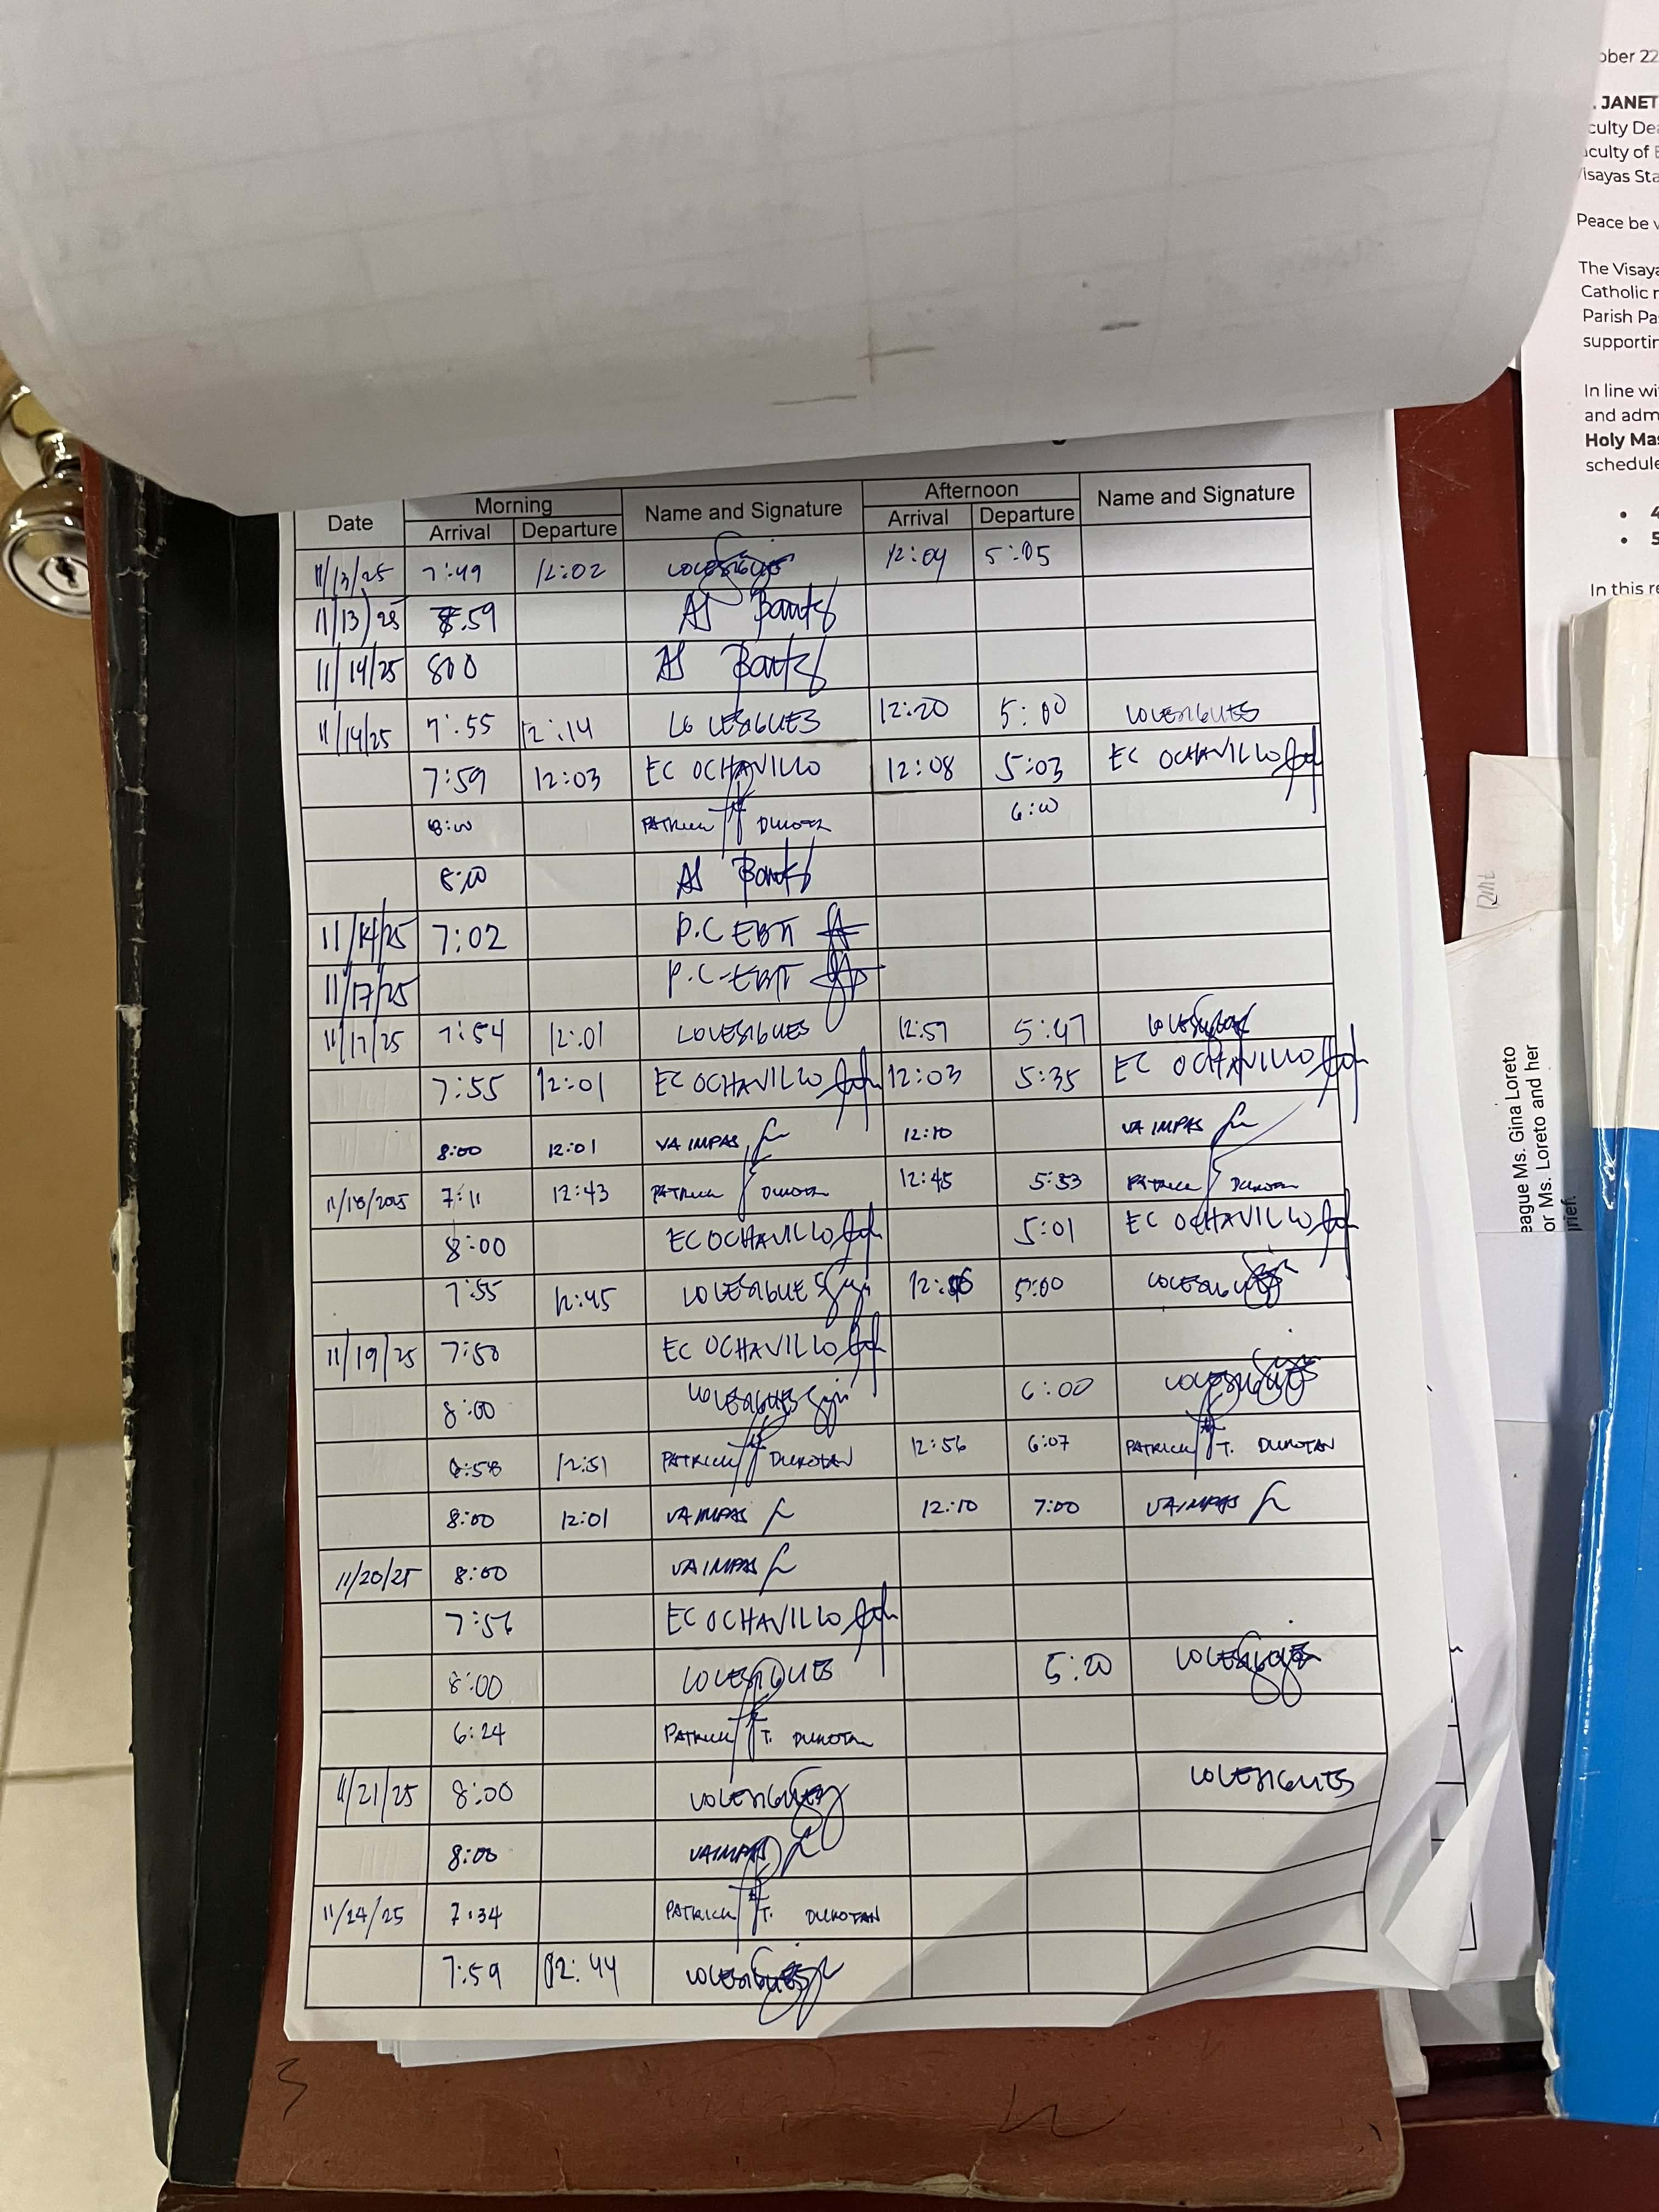 Date Morning Name and Signature Afternoon Name and Signature
Arrival Departure Arrival Departure
11/13/25 7:49 12:02 LOVESIGUES 12:04 5:05
11/13/25 8:59
11/14/25 800
11/14/25 7:55 12:14 LOVESIGUES 12:20 5:00 LOVESIGUES
7:59 12:03 EC OCHAVILLO 12:08 5:03 EC OCHAVILLO
8:00 PATRICK 6:00
8:00
11/14/25 7:02 P.C EBIT
11/17/25 P.C-EBIT
11/17/25 7:54 12:01 LOVESIGUES 12:57 5:47 LOVESIGUES
7:55 12:01 EC OCHAVILLO 12:03 5:35 EC OCHAVILLO
8:00 12:01 VA IMPAS 12:10 VA IMPAS
11/18/2025 7:11 12:43 PATRICK 12:45 5:33 PATRICK
8:00 EC OCHAVILLO 5:01 EC OCHAVILLO
7:55 12:45 LOVESIGUES 5:00 LOVESIGUES
11/19/25 7:50 EC OCHAVILLO
8:00 LOVESIGUES 6:00 LOVESIGUES
12:51 PATRICK DUKOTAN 12:56 6:07 PATRICK T. DUKOTAN
8:00 12:01 VA IMPAS 12:10 7:00 VA IMPAS
11/20/25 8:00 VA IMPAS
7:56 EC OCHAVILLO
8:00 LOVESIGUES 5:20 LOVESIGUES
6:24 PATRICK T. DUKOTAN
11/21/25 8:00 LOVESIGUES LOVESIGUES
8:00 VA IMPAS
11/24/25 7:34 PATRICK T. DUKOTAN
7:59 12:44 LOVESIGUES
ober 22
. JANET
culty Dea
aculty of
isayas Sta
Peace be
The Visaya
Catholic
Parish Pa
supportin
In line wi
and adm
Holy Mas
schedule
• 4
• 5
In this re
eague Ms. Gina Loreto
or Ms. Loreto and her
rief.